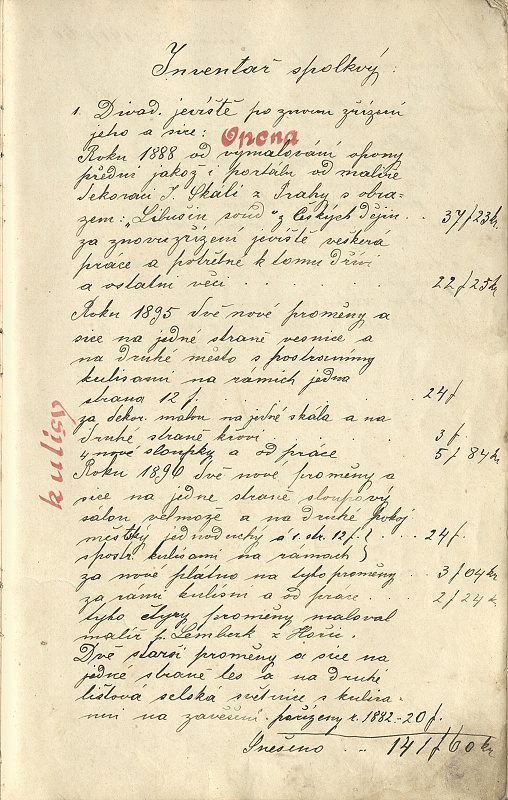 Inventař spolkový:
1. Divad. jeviště po znovu zřízení
jeho a sice: Opona
Roku 1888 od vymalování opony
přední jakož i portálu od malíře
dekorací J. Skáli z Prahy s obra-
zem: „Libušin soud" z českých dějin . . 37 f 23 kr.
za znovuzřízení jeviště veškerá
práce a potřebné k tomu dříví
a ostatní věci . . . . . 22 f 25 kr
Roku 1895 dvě nové proměny a
sice na jedné straně vesnice a
na druhé město s postranními
kulisami na rámích jedna
strana 12 f. . . . . 24 f
kulisy
za dekor. malbu na jedné skála a na
druhé straně křoví . . . . 3 f.
„ nové sloupky a od práce . 5 f 84 kr
Roku 1896 dvě nové proměny a
sice na jedné straně sloupový
sálon velmože a na druhé Pokoj
městský jednoduchý á 1. str. 12 f. } . 24 f.
s postr. kulisami na rámách }
za nové plátno na tyto proměny . 3 f 04 kr
za rámi kulism a od práce . . . 2 f 24 k.
tyto čtyry proměny maloval
malíř p. Lemberk z Hořic.
Dvě starší proměny a sice na
jedné straně les a na druhé
lištová selská světnice s kulisa-
mi na zavěšení. pořízeny r. 1882 - 20 f.
Snešeno . . . 141 f 60 kr